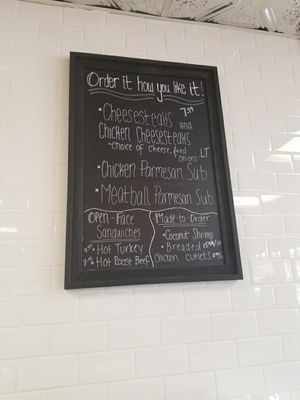 Order it how you like it!
•Cheesesteaks and 7.99
Chicken Cheesesteaks
-choice of cheese, fried
onions, LT
•Chicken Parmesan Sub
•Meatball Parmesan Sub
Open-Face
Sandwiches
Hot Turkey
Hot Roast Beef
Made-to-Order
•Coconut Shrimp
•Breaded
Chicken cutlets